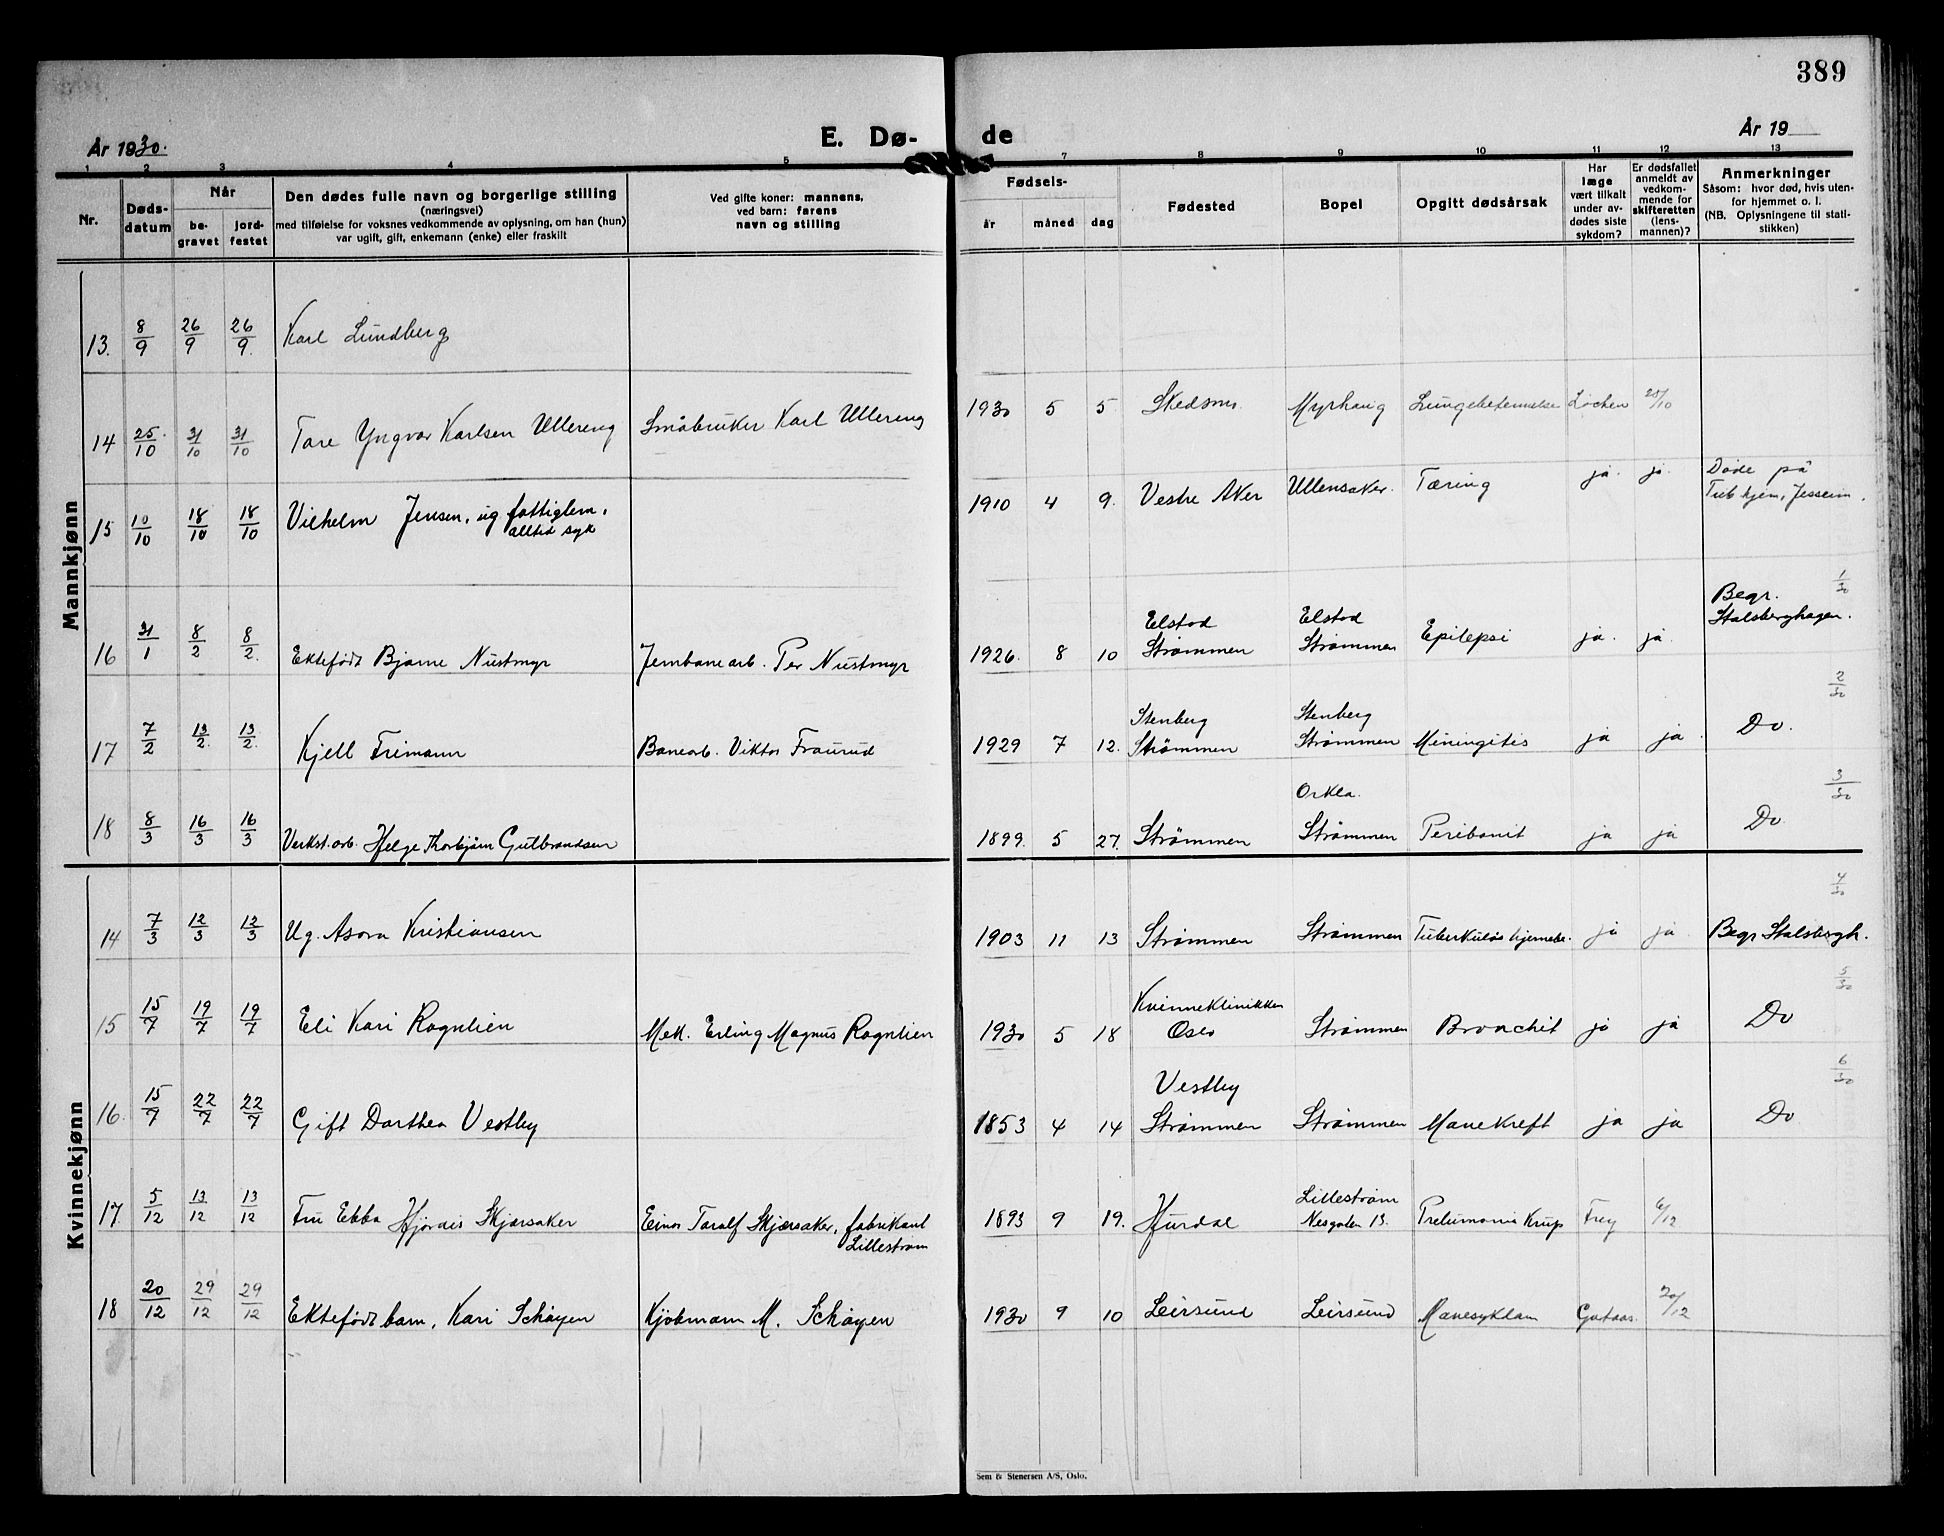 389
År 1930.
E. Dø-
de
År 19
1 2 3 4 5 7 8 9 10 11 12 13
Nr.
Døds-
datum
Når
be-
gravet
jord-
festet
Den dødes fulle navn og borgerlige stilling
(næringsvei)
med tilføielse for voksnes vedkommende av oplysning, om han (hun)
var ugift, gift, enkemann (enke) eller fraskilt
Ved gifte koner: mannens,
ved barn: farens
navn og stilling
Fødsels-
år måned dag
Fødested
Bopel
Opgitt dødsårsak
Har
læge
vært tilkalt
under av-
dødes siste
sykdom?
Er dødsfallet
anmeldt av
vedkom-
mende for
skifteretten
(lens-
mannen)?
Anmerkninger
Såsom: hvor død, hvis uten-
for hjemmet o. l.
(NB. Oplysningene til stati-
stikken)
Mannkjønn
13. 8/9 26/9 26/9. Karl Lundberg
14 25/10 31/10 31/10 Tore Yngvar Karlsen Ullereng Småbruker Karl Ullereng 1930 5 5 Skedsmo Myrhaug Lungebetennelse Lochen 25/10
15 10/10 18/10 18/10 Vilhelm Jensen, ug fattiglem,
alltid syk
1910 4 9. Vestre Aker Ullensaker. Tæring ja. ja. Døde på
Tub hjem, Jesseim.
1/30
16 31/1 8/2 8/2. Ektefødt Bjarne Nustmyr Jernbanearb. Per Nustmyr 1926. 8 10 Elstad
Strømmen
Elstad
Strømmen
Epilepsi ja. ja. Begr.
Stalsberghagen.
2/30
17 7/2 13/2. 13/2. Kjell Frimann Banearb. Viktor Fraurud 1929 7 12. Stenberg
Strømmen
Stenberg
Strømmen
Miningitis ja ja Do.
3/30
18 8/3 16/3 16/3 Verkst.arb. Helge Thorbjørn Gutbrandsen 1899. 5 27. Strømmen Orkla.
Strømmen
Peribonit ja ja Do
Kvinnekjønn
4/30
14 7/3 12/3 12/3 Ug. Asora Kristiansen 1903 11 13 Strømmen Strømmen Tuberkuløs hjernebe. ja ja Begr Stalsbergh.
5/30
15 15/7 19/7 19/7 Eli Kari Rognlien Mek. Erling Magnus Rognlien 1930 5 18 Kvinneklinikken
Oslo
Strømmen Bronchit ja ja Do
6/30
16. 15/7 22/7 22/7 Gift Dorthea Vestby 1853 4 14 Vestby
Strømmen
Strømmen Mavekreft ja ja Do
17. 5/12 13/12 13/12 Fru Ebba Hjørdis Skjærsaker Einar Toralf Skjærsaker, fabrikant
Lillestrøm
1893 9 19. Hurdal Lillestrøm
Nesgaten 13.
Prelumonia Krup Frey 6/12
18 20/12 29/12 29/12 Ektefødt barn, Kari Schøyen Kjøbmann M. Schøyen 1930 9 10 Leirsund Leirsund Mavesykdom 20/12
Sem & Stenersen A/S, Oslo.